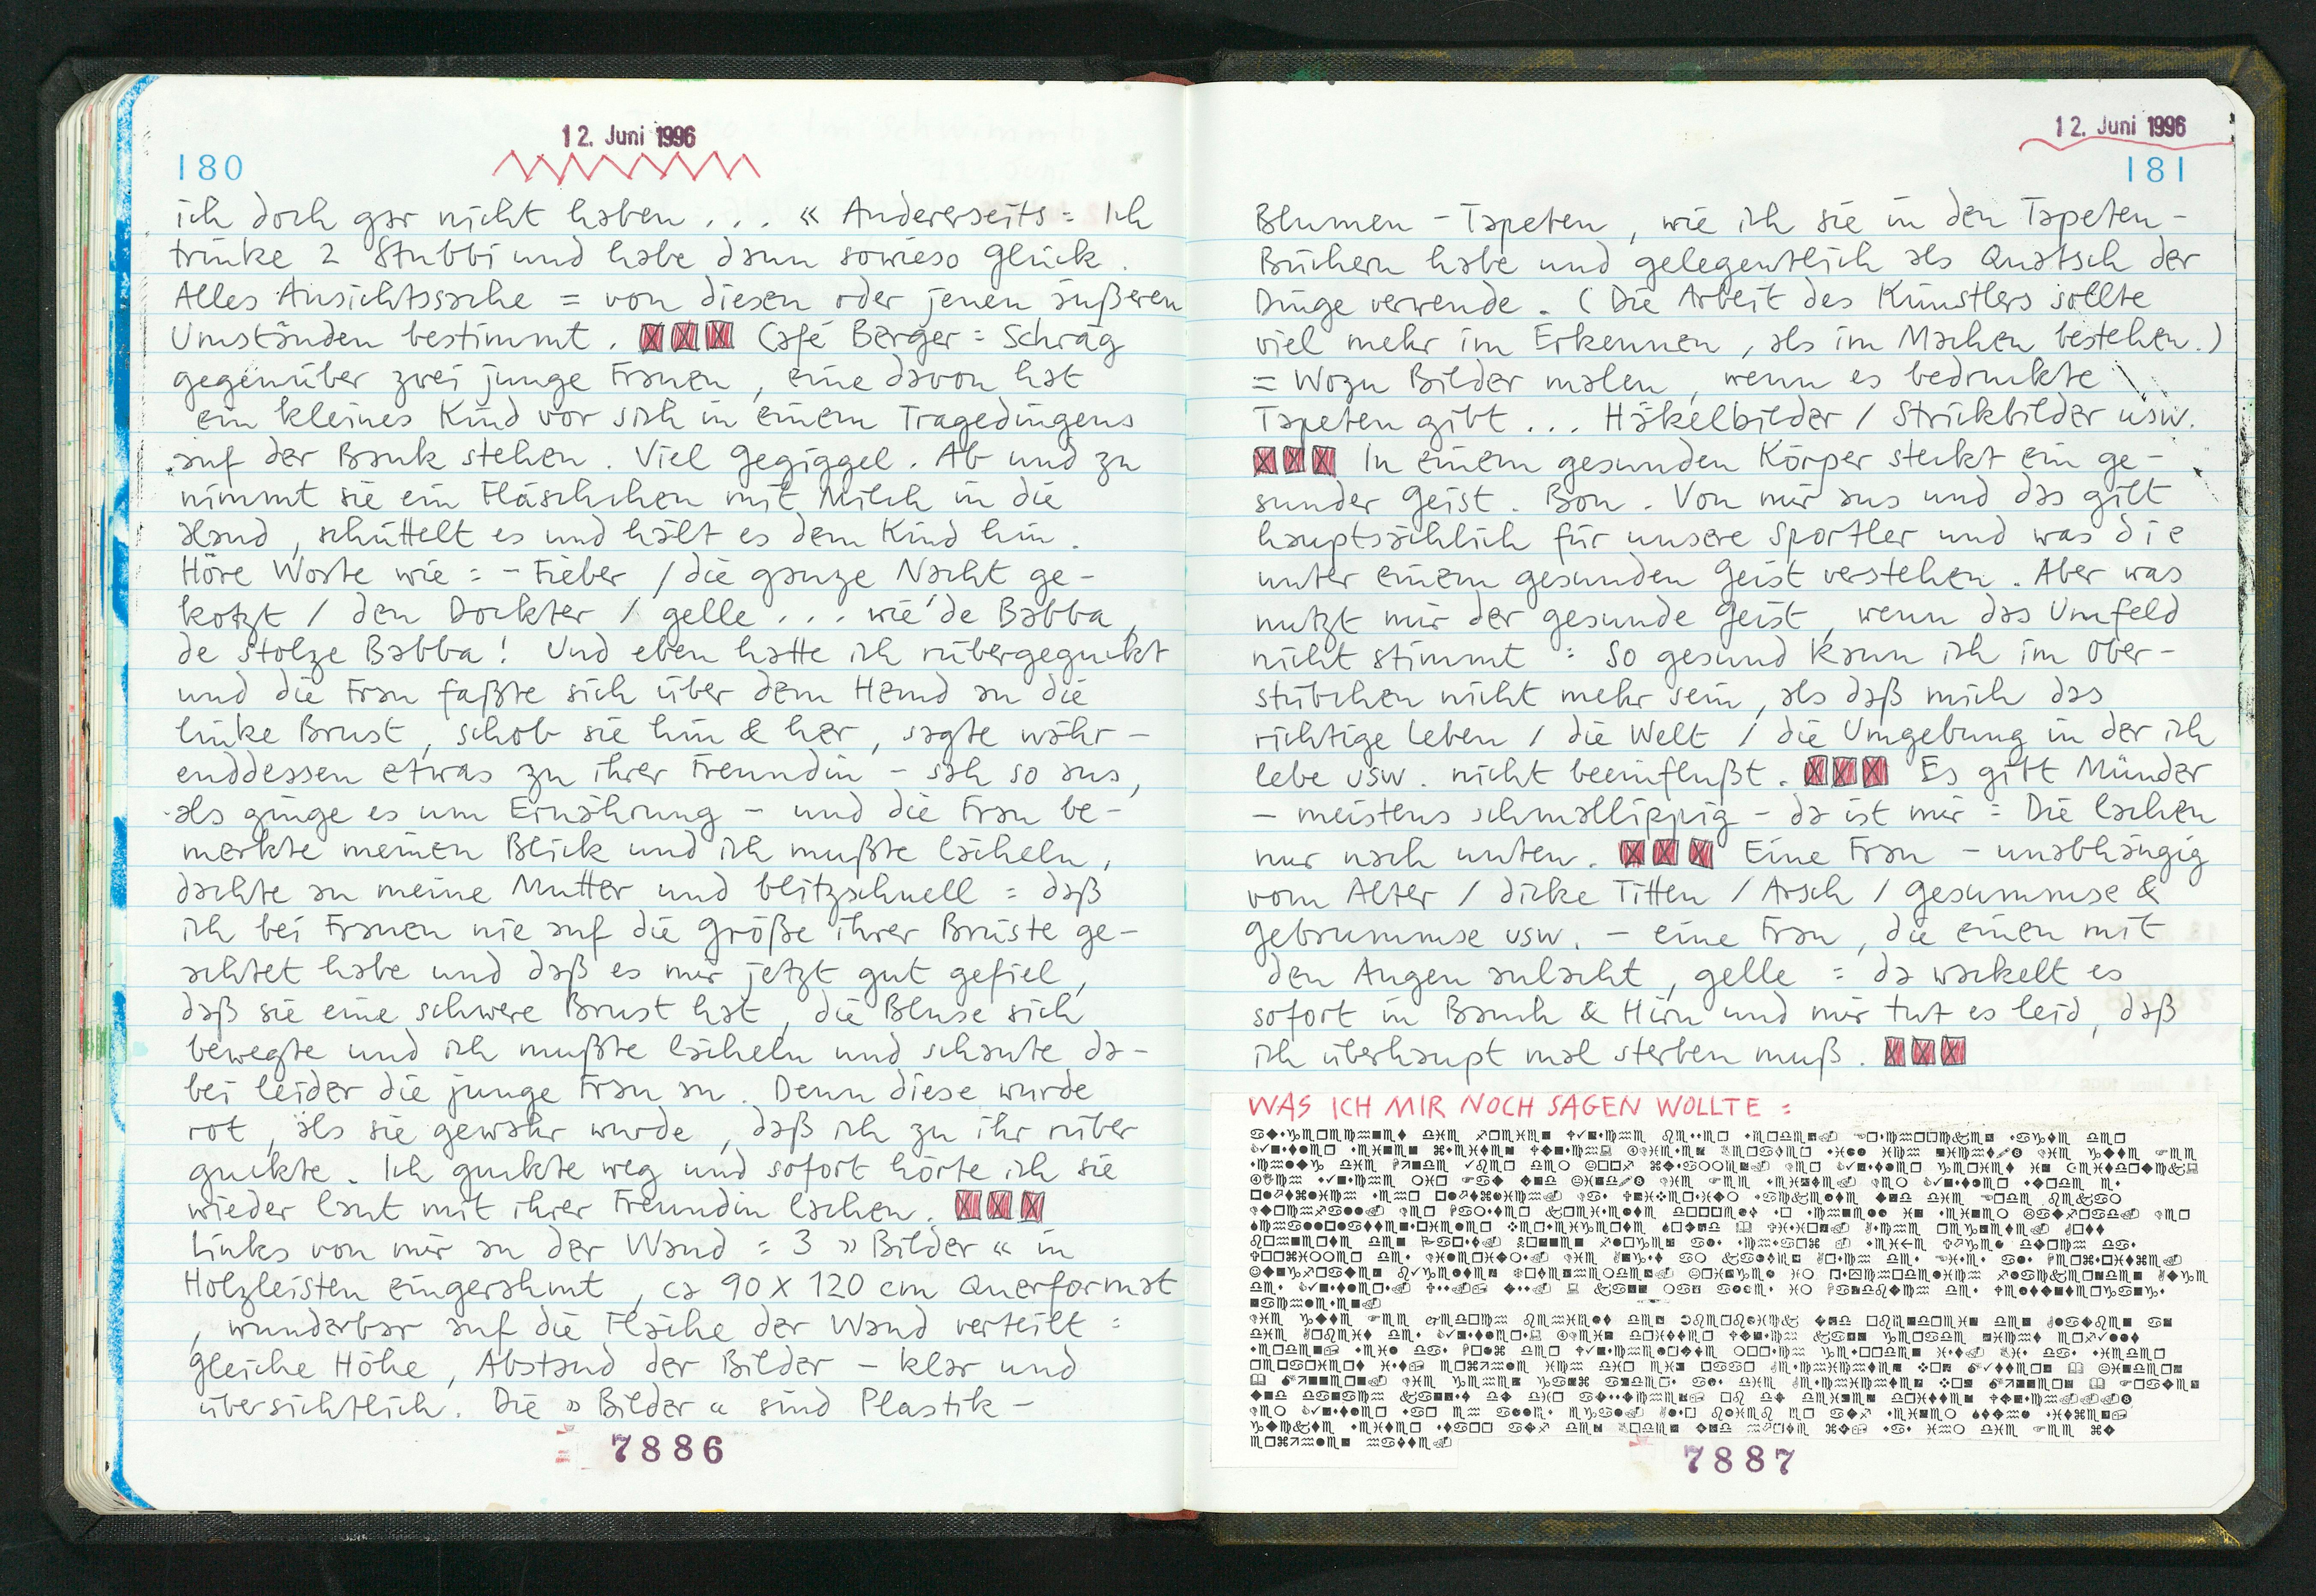 12. Juni 1996
180
ich doch gar nicht haben ... « Andererseits = Ich
trinke 2 Stubbi und habe dann sowieso Glück.
Alles Ansichtssache = von diesen oder jenen äußeren
Umständen bestimmt. Café Berger = Schräg
gegenüber zwei junge Frauen, eine davon hat
ein kleines Kind vor sich in einem Tragedingens
auf der Bank stehen. Viel Gegiggel. Ab und zu
nimmt sie ein Fläschchen mit Milch in die
Hand, schüttelt es und hält es dem Kind hin.
Höre Worte wie = - Fieber / die ganze Nacht ge-
kotzt / den Dockter / gelle ... wie de Babba,
de stolze Babba! Und eben hatte ich rübergeguckt
und die Frau faßte sich über dem Hemd an die
linke Brust, schob sie hin & her, sagte währ-
enddessen etwas zu ihrer Freundin - sah so aus,
als ginge es um Ernährung - und die Frau be-
merkte meinen Blick und ich mußte lächeln,
dachte an meine Mutter und blitzschnell = daß
ich bei Frauen nie auf die Größe ihrer Brüste ge-
achtet habe und daß es mir jetzt gut gefiel,
daß sie eine schwere Brust hat, die Bluse sich
bewegte und ich mußte lächeln und schaute da-
bei leider die junge Frau an. Denn diese wurde
rot, als sie gewahr wurde, daß ich zu ihr rüber
guckte. Ich guckte weg und sofort hörte ich sie
wieder laut mit ihrer Freundin lachen.
Links von mir an der Wand = 3 » Bilder « in
Holzleisten eingerahmt, ca 90 x 120 cm Querformat
, wunderbar auf die Fläche der Wand verteilt =
gleiche Höhe, Abstand der Bilder - klar und
übersichtlich. Die » Bilder « sind Plastik-
7886
12. Juni 1996
181
Blumen - Tapeten, wie ich sie in den Tapeten-
Büchern habe und gelegentlich als Quatsch der
Dinge verwende. (Die Arbeit des Künstlers sollte
viel mehr im Erkennen, als im Machen bestehen.)
= Wozu Bilder malen, wenn es bedruckte
Tapeten gibt ... Häkelbilder / Strickbilder usw.
In einem gesunden Körper steckt ein ge-
sunder Geist. Bon. Von mir aus und das gilt
hauptsächlich für unsere Sportler und was die
unter einem gesunden Geist verstehen. Aber was
nutzt mir der gesunde Geist, wenn das Umfeld
nicht stimmt = So gesund kann ich im Ober-
stübchen nicht mehr sein, als daß mich das
richtige Leben / die Welt / die Umgebung in der ich
lebe usw. nicht beeinflußt. Es gibt Münder
- meistens schmallippig - da ist mir = Die lachen
nur nach unten. Eine Frau - unabhängig
vom Alter / dicke Titten / Arsch / Gesummse &
Gebrummse usw. - eine Frau, die einen mit
den Augen anlacht, gelle = da wackelt es
sofort in Bauch & Hirn und mir tut es leid, daß
ich überhaupt mal sterben muß.
WAS ICH MIR NOCH SAGEN WOLLTE =
7887